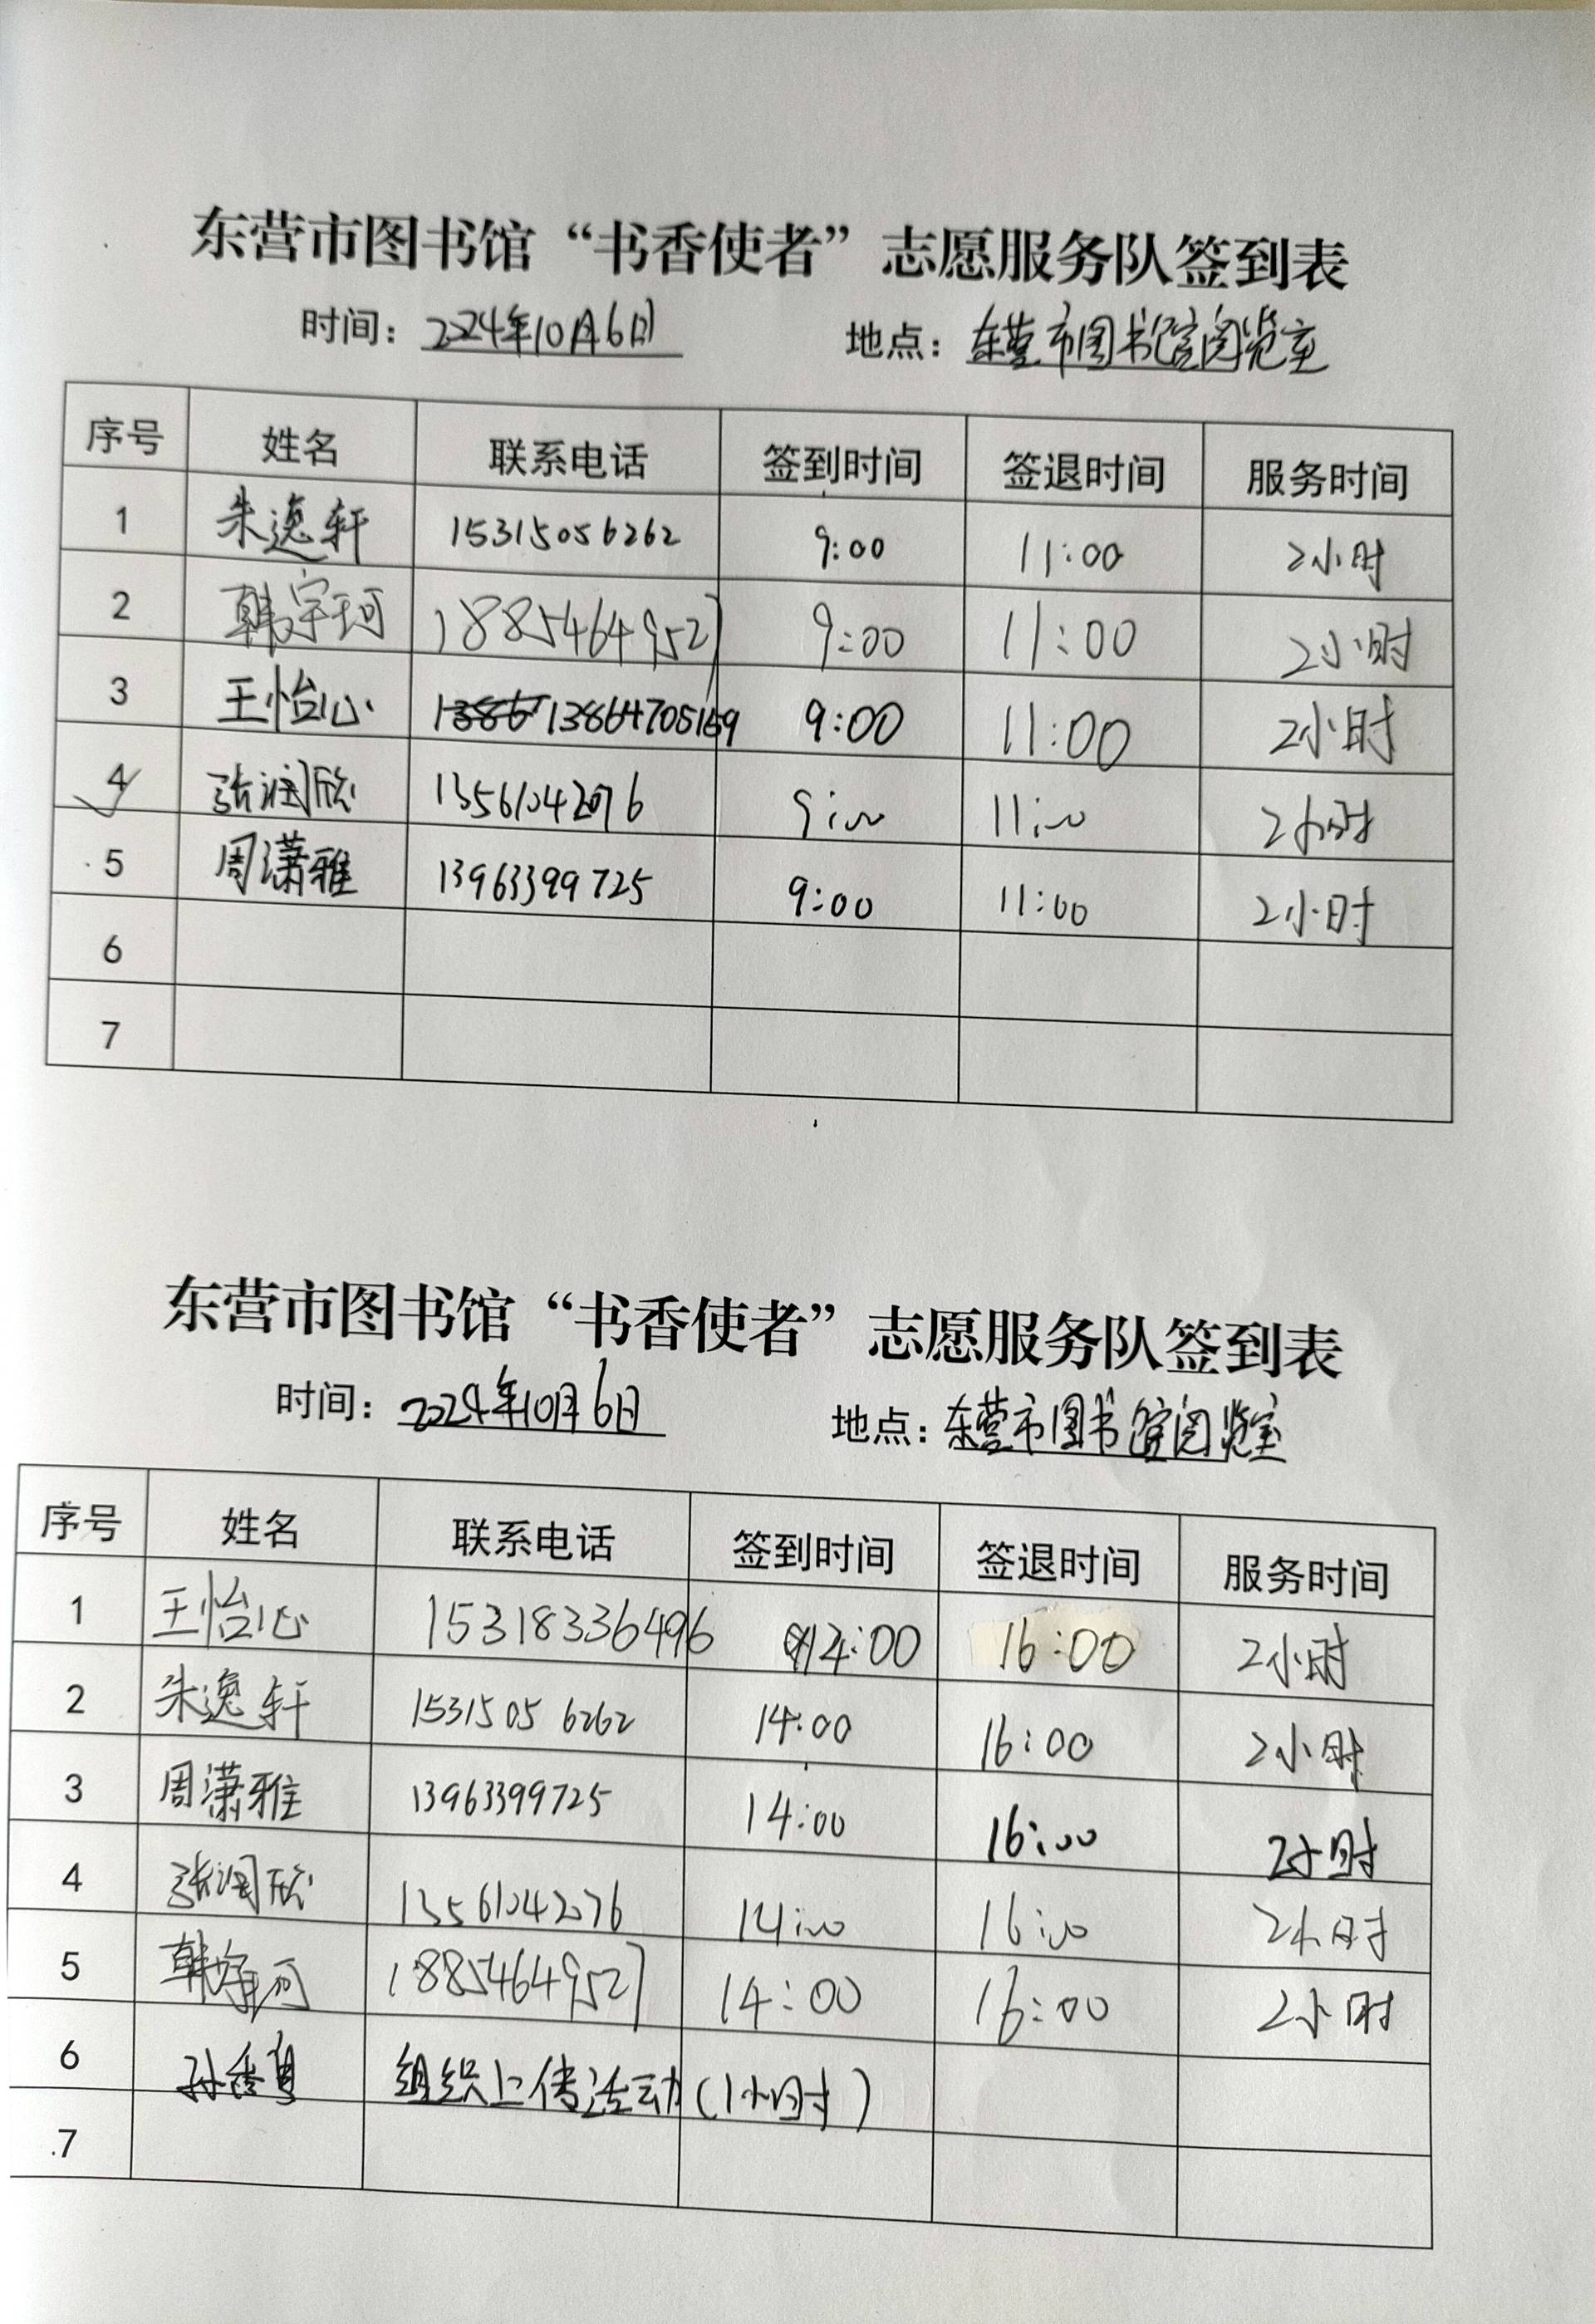 东营市图书馆“书香使者”志愿服务队签到表
时间：2024年10月6日 地点：东营市图书馆阅览室
序号 姓名 联系电话 签到时间 签退时间 服务时间
1 朱逸轩 15315056262 9:00 11:00 2小时
2 韩宇珂 18854649527 9:00 11:00 2小时
3 王怡心 13864705159 9:00 11:00 2小时
4 张润欣 13561042076 9:00 11:00 2小时
5 周潇雅 13963399725 9:00 11:00 2小时
6
7
东营市图书馆“书香使者”志愿服务队签到表
时间：2024年10月6日 地点：东营市图书馆阅览室
序号 姓名 联系电话 签到时间 签退时间 服务时间
1 王怡心 15318336496 14:00 16:00 2小时
2 朱逸轩 15315056262 14:00 16:00 2小时
3 周潇雅 13963399725 14:00 16:00 2小时
4 张润欣 13561042076 14:00 16:00 2小时
5 韩宇珂 18854649527 14:00 16:00 2小时
6 组织上传活动(1小时)
7